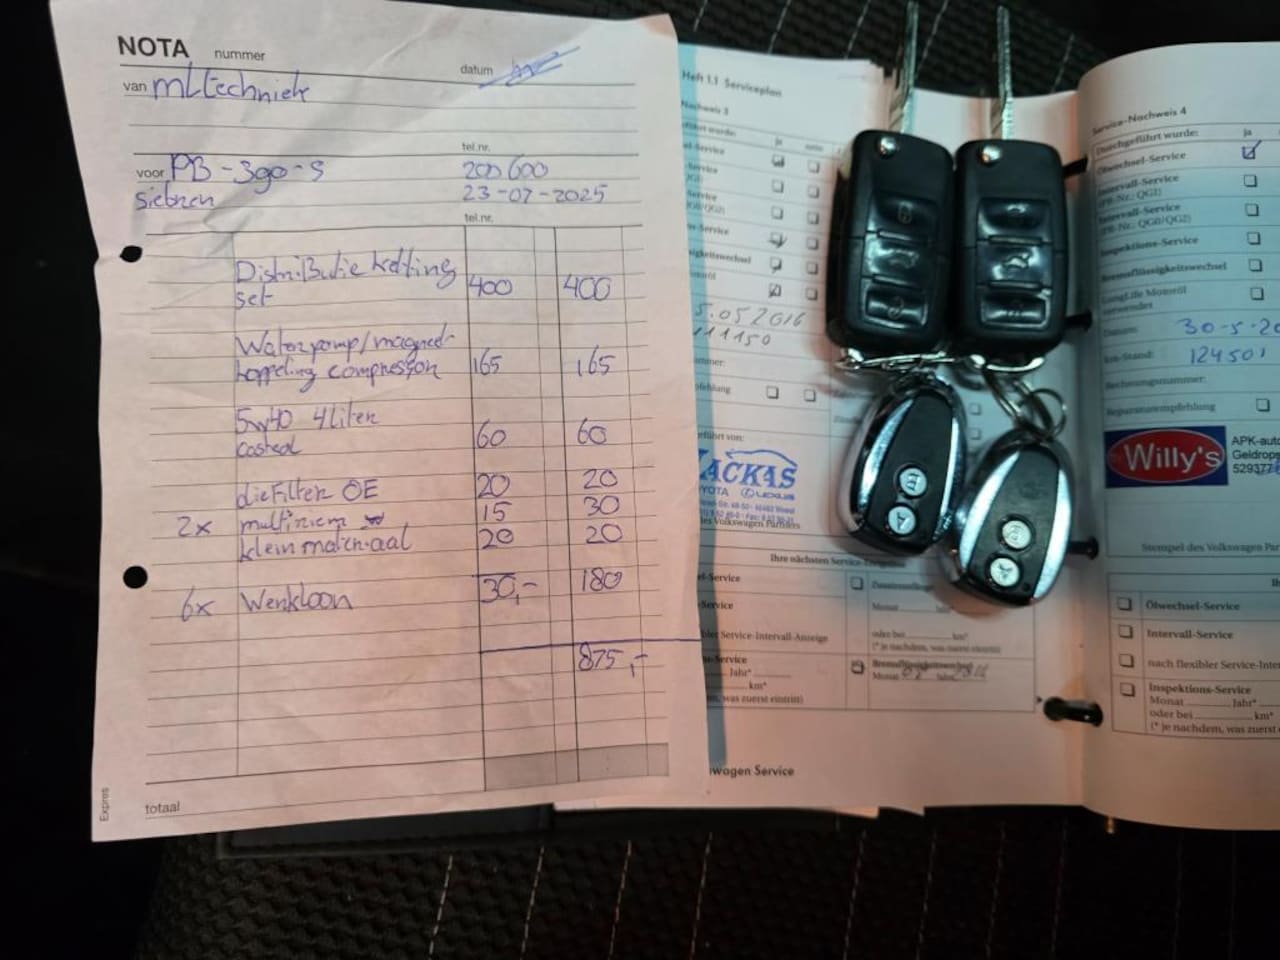 NOTA nummer
datum
van mLtechniek
tel.nr.
voor PB-390-S 200600
siebren 23-07-2025
tel.nr.
Distributie ketting
set 400 400
Waterpomp/magneet-
koppeling compressor 165 165
5w40 4Liter
Castrol 60 60
oliefilter OE 20 20
2x multiriem 15 30
klein materiaal 20 20
6x Werkloon 30,- 180
875,-
totaal
Expres
Heft 1.1 Serviceplan
Nachweis 3
ja
111150
YOTA LEXUS
Ihre nächsten Service-Ereignisse
Service
Service-Intervall-Anzeige
Monat
oder bei km*
(* je nachdem, was zuerst eintritt)
Bremsflüssigkeitswechsel
Jahr*
km*
was zuerst eintritt)
wagen Service
Service-Nachweis 4
Durchgeführt wurde: ja
Ölwechsel-Service
Intervall-Service
(PR-Nr.: QG1)
Intervall-Service
(PR-Nr.: QG0/QG2)
Inspektions-Service
Bremsflüssigkeitswechsel
LongLife Motoröl
verwendet
Datum: 30-5-20
km-Stand: 124501
Rechnungsnummer:
Reparaturempfehlung
Willy's
APK-auto
Geldrops
Stempel des Volkswagen Par
Ölwechsel-Service
Intervall-Service
nach flexibler Service-Inter
Inspektions-Service
Monat Jahr*
oder bei km*
(* je nachdem, was zuerst